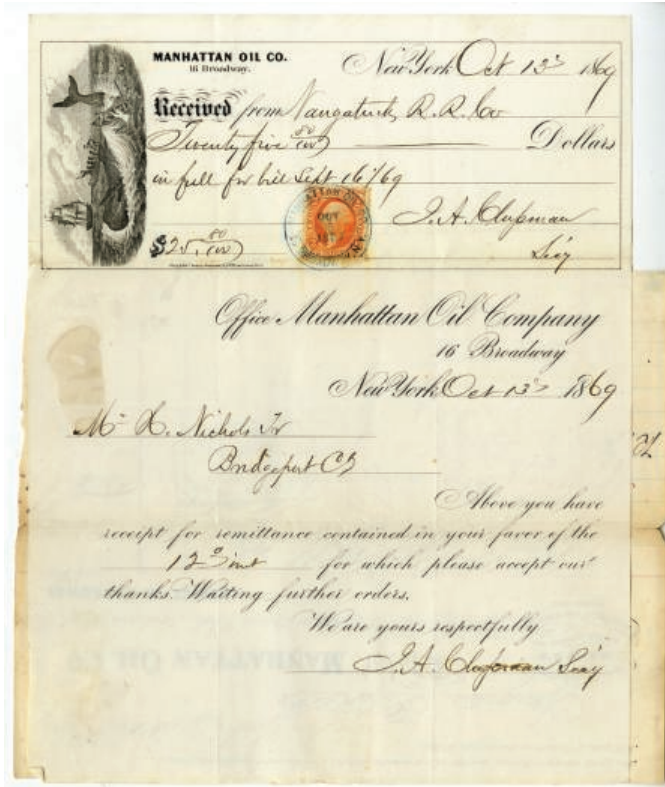 MANHATTAN OIL CO.
16 Broadway.
New York Oct 13 1869
Received from Naugatuck R.R. Co
Twenty five 80/100 Dollars
in full for bill Sept 16/69
J. A. Chapman
$25. 80/100 Secy
Office Manhattan Oil Company
16 Broadway
New York Oct 13 1869
Mr Nichols Tr
Bridgeport Ct
Above you have
receipt for remittance contained in your favor of the
12 inst for which please accept our
thanks. Waiting further orders,
We are yours respectfully
J. A. Chapman Secy